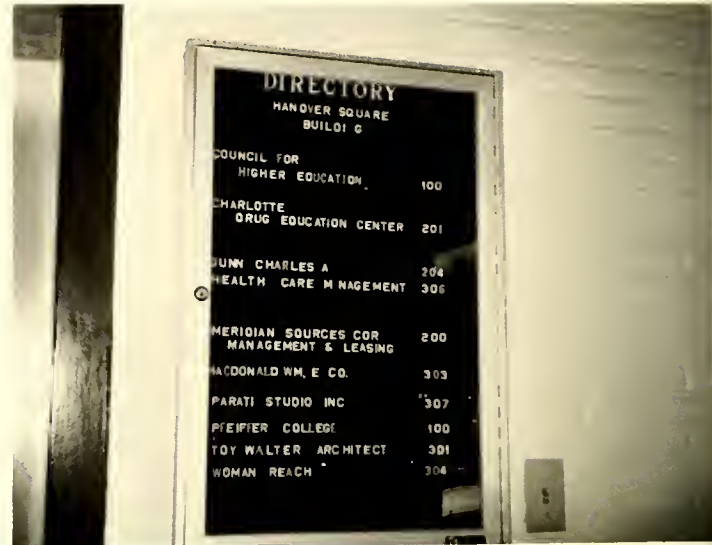 DIRECTORY
HANOVER SQUARE
BUILDI G
COUNCIL FOR
HIGHER EDUCATION 100
CHARLOTTE
DRUG EDUCATION CENTER 201
DUNN CHARLES A 204
HEALTH CARE M NAGEMENT 306
MERIDIAN SOURCES COR 200
MANAGEMENT & LEASING
MACDONALD WM, E CO. 303
PARATI STUDIO INC 307
PFEIFFER COLLEGE 100
TOY WALTER ARCHITECT 301
WOMAN REACH 304